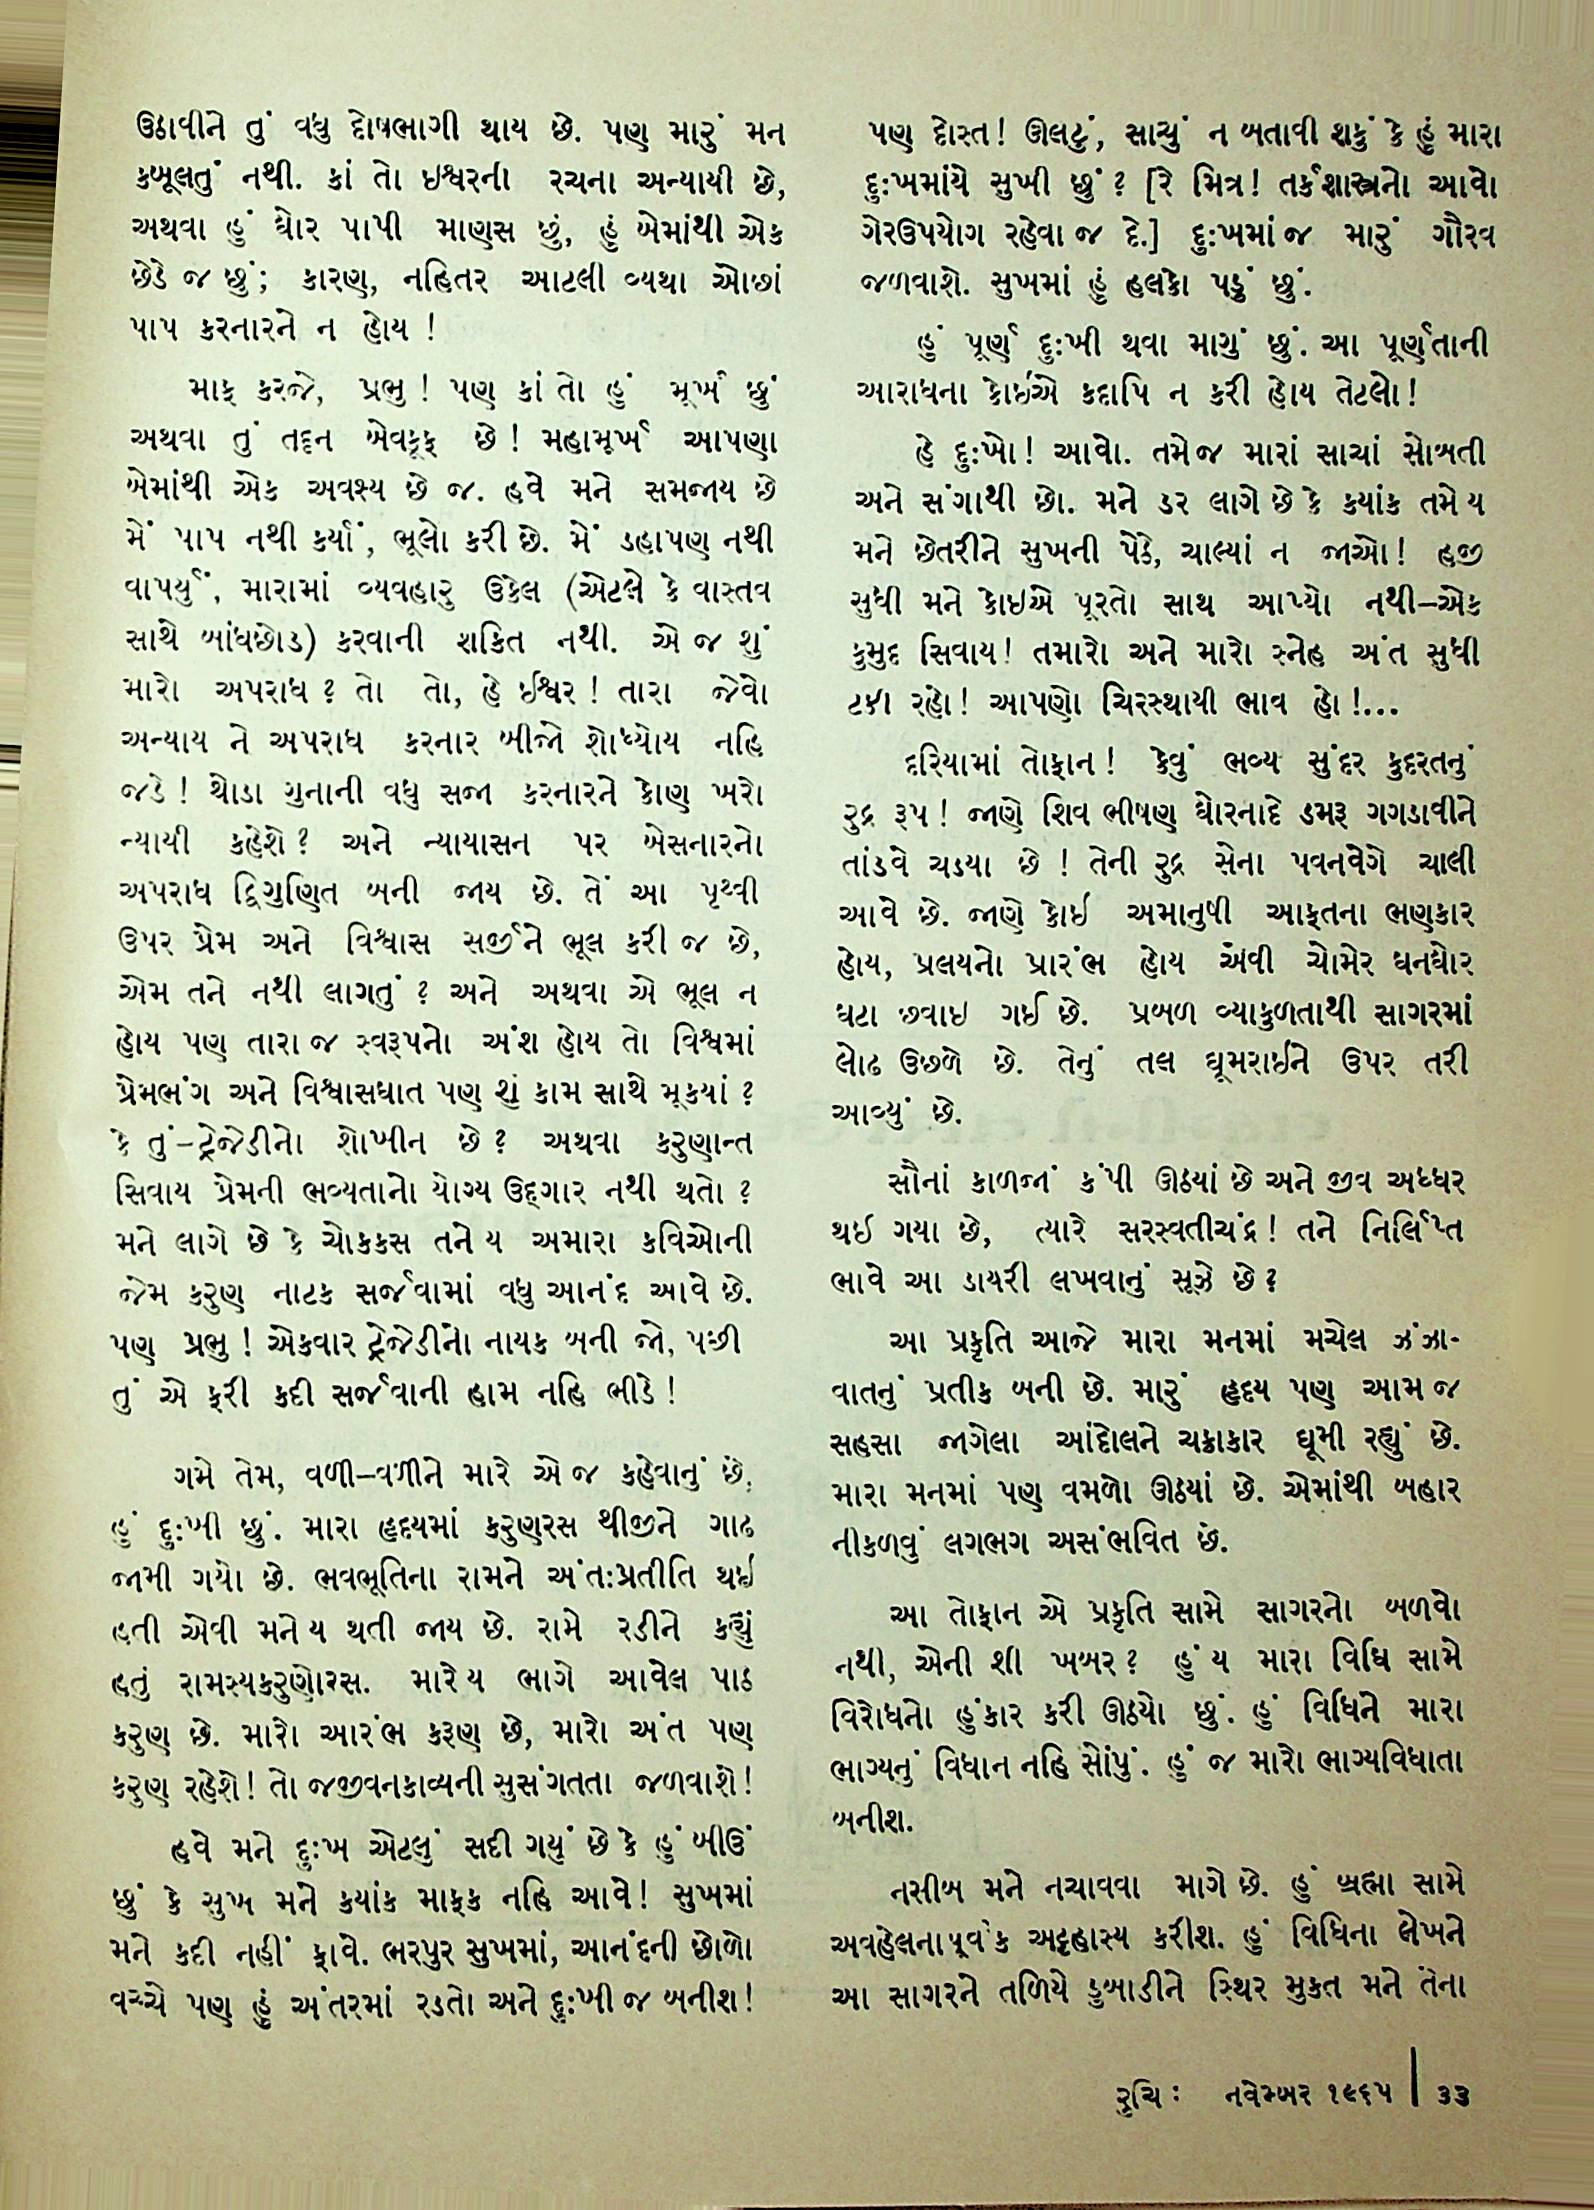 ઉઠાવીને તું વધુ દોષભાગી થાય છે. પણ મારું મન
કબૂલતું નથી. કાં તો ઇશ્વરની રચના અન્યાયી છે,
અથવા હું ઘોર પાપી માણસ છું, હું બેમાંથી એક
છેડે જ છું; કારણ, નહિતર આટલી વ્યથા ઓછાં
પાપ કરનારને ન હોય !
માફ કરજે, પ્રભુ ! પણ કાં તો હું મૂર્ખ છું
અથવા તું તદ્દન બેવકૂફ છે ! મહામૂર્ખ આપણા
બેમાંથી એક અવશ્ય છે જ. હવે મને સમજાય છે
મેં પાપ નથી કર્યાં, ભૂલો કરી છે. મેં ડહાપણ નથી
વાપર્યું, મારામાં વ્યવહારુ ઉકેલ (એટલે કે વાસ્તવ
સાથે બાંધછોડ) કરવાની શકિત નથી. એ જ શું
મારો અપરાધ ? તો તો, હે ઈશ્વર ! તારા જેવો
અન્યાય ને અપરાધ કરનાર બીજો શોધ્યોય નહિ
જડે ! થોડા ગુનાની વધુ સજા કરનારને કોણ ખરો
ન્યાયી કહેશે ? અને ન્યાયાસન પર બેસનારનો
અપરાધ દ્વિગુણિત બની જાય છે. તેં આ પૃથ્વી
ઉપર પ્રેમ અને વિશ્વાસ સર્જીને ભૂલ કરી જ છે,
એમ તને નથી લાગતું ? અને અથવા એ ભૂલ ન
હોય પણ તારા જ સ્વરૂપનો અંશ હોય તો વિશ્વમાં
પ્રેમભંગ અને વિશ્વાસઘાત પણ શું કામ સાથે મૂકયાં ?
કે તું–ટ્રેજેડીનો શોખીન છે ? અથવા કરુણાન્ત
સિવાય પ્રેમની ભવ્યતાનો યોગ્ય ઉદ્‌ગાર નથી થતો ?
મને લાગે છે કે ચોકકસ તને ય અમારા કવિઓની
જેમ કરુણ નાટક સર્જવામાં વધુ આનંદ આવે છે.
પણ પ્રભુ ! એકવાર ટ્રેજેડીનો નાયક બની જો, પછી
તું એ ફરી કદી સર્જવાની હામ નહિ ભીડે !
ગમે તેમ, વળી–વળીને મારે એ જ કહેવાનું છે,
હું દુઃખી છું. મારા હૃદયમાં કરુણરસ થીજીને ગાઢ
જામી ગયો છે. ભવભૂતિના રામને અંતઃપ્રતીતિ થઇ
હતી એવી મને ય થતી જાય છે. રામે રડીને કહ્યું
હતું રામસ્યકરુણોરસ. મારે ય ભાગે આવેલ પાઠ
કરુણ છે. મારો આરંભ કરૂણ છે, મારો અંત પણ
કરુણ રહેશે ! તો જજીવનકાવ્યની સુસંગતતા જળવાશે !
હવે મને દુઃખ એટલું સદી ગયું છે કે હું બીઉં
છું કે સુખ મને કયાંક માફક નહિ આવે ! સુખમાં
મને કદી નહીં ફાવે. ભરપુર સુખમાં, આનંદની છોળો
વચ્ચે પણ હું અંતરમાં રડતો અને દુઃખી જ બનીશ !
પણ દોસ્ત ! ઊલટું, સાચું ન બતાવી શકું કે હું મારા
દુઃખમાંયે સુખી છું ? [રે મિત્ર ! તર્કશાસ્ત્રનો આવો
ગેરઉપયોગ રહેવા જ દે.] દુઃખમાં જ મારું ગૌરવ
જળવાશે. સુખમાં હું હલકો પડું છું.
હું પૂર્ણ દુઃખી થવા માગું છું. આ પૂર્ણતાની
આરાધના કોઇએ કદાપિ ન કરી હોય તેટલો !
હે દુઃખો ! આવો. તમે જ મારાં સાચાં સોબતી
અને સંગાથી છો. મને ડર લાગે છે કે કયાંક તમે ય
મને છેતરીને સુખની પેઠે, ચાલ્યાં ન જાઓ ! હજી
સુધી મને કોઇએ પૂરતો સાથ આપ્યો નથી–એક
કુમુદ સિવાય ! તમારો અને મારો સ્નેહ અંત સુધી
ટકી રહો ! આપણો ચિરસ્થાયી ભાવ હો !...
દરિયામાં તોફાન ! કેવું ભવ્ય સુંદર કુદરતનું
રુદ્ર રૂપ ! જાણે શિવ ભીષણ ઘોરનાદે ડમરૂ ગગડાવીને
તાંડવે ચડયા છે ! તેની રુદ્ર સેના પવનવેગે ચાલી
આવે છે. જાણે કોઇ અમાનુષી આફતના ભણકાર
હોય, પ્રલયનો પ્રારંભ હોય એવી ચોમેર ઘનઘોર
ઘટા છવાઇ ગઈ છે. પ્રબળ વ્યાકુળતાથી સાગરમાં
લોઢ ઉછળે છે. તેનું તલ ઘૂમરાઈને ઉપર તરી
આવ્યું છે.
સૌનાં કાળજાં કંપી ઊઠયાં છે અને જીવ અધ્ધર
થઇ ગયા છે, ત્યારે સરસ્વતીચંદ્ર ! તને નિર્લિપ્ત
ભાવે આ ડાયરી લખવાનું સૂઝે છે ?
આ પ્રકૃતિ આજે મારા મનમાં મચેલ ઝંઝા-
વાતનું પ્રતીક બની છે. મારું હૃદય પણ આમ જ
સહસા જાગેલા આંદોલને ચક્રાકાર ઘૂમી રહ્યું છે.
મારા મનમાં પણ વમળો ઊઠયાં છે. એમાંથી બહાર
નીકળવું લગભગ અસંભવિત છે.
આ તોફાન એ પ્રકૃતિ સામે સાગરનો બળવો
નથી, એની શી ખબર ? હું ય મારા વિધિ સામે
વિરોધનો હુંકાર કરી ઊઠયો છું. હું વિધિને મારા
ભાગ્યનું વિધાન નહિ સોંપું. હું જ મારો ભાગ્યવિધાતા
બનીશ.
નસીબ મને નચાવવા માગે છે. હું બ્રહ્મા સામે
અવહેલનાપૂર્વક અટ્ટહાસ્ય કરીશ. હું વિધિના લેખને
આ સાગરને તળિયે ડુબાડીને સ્થિર મુકત મને તેના
રુચિ : નવેમ્બર ૧૯૬૫ | ૩૩